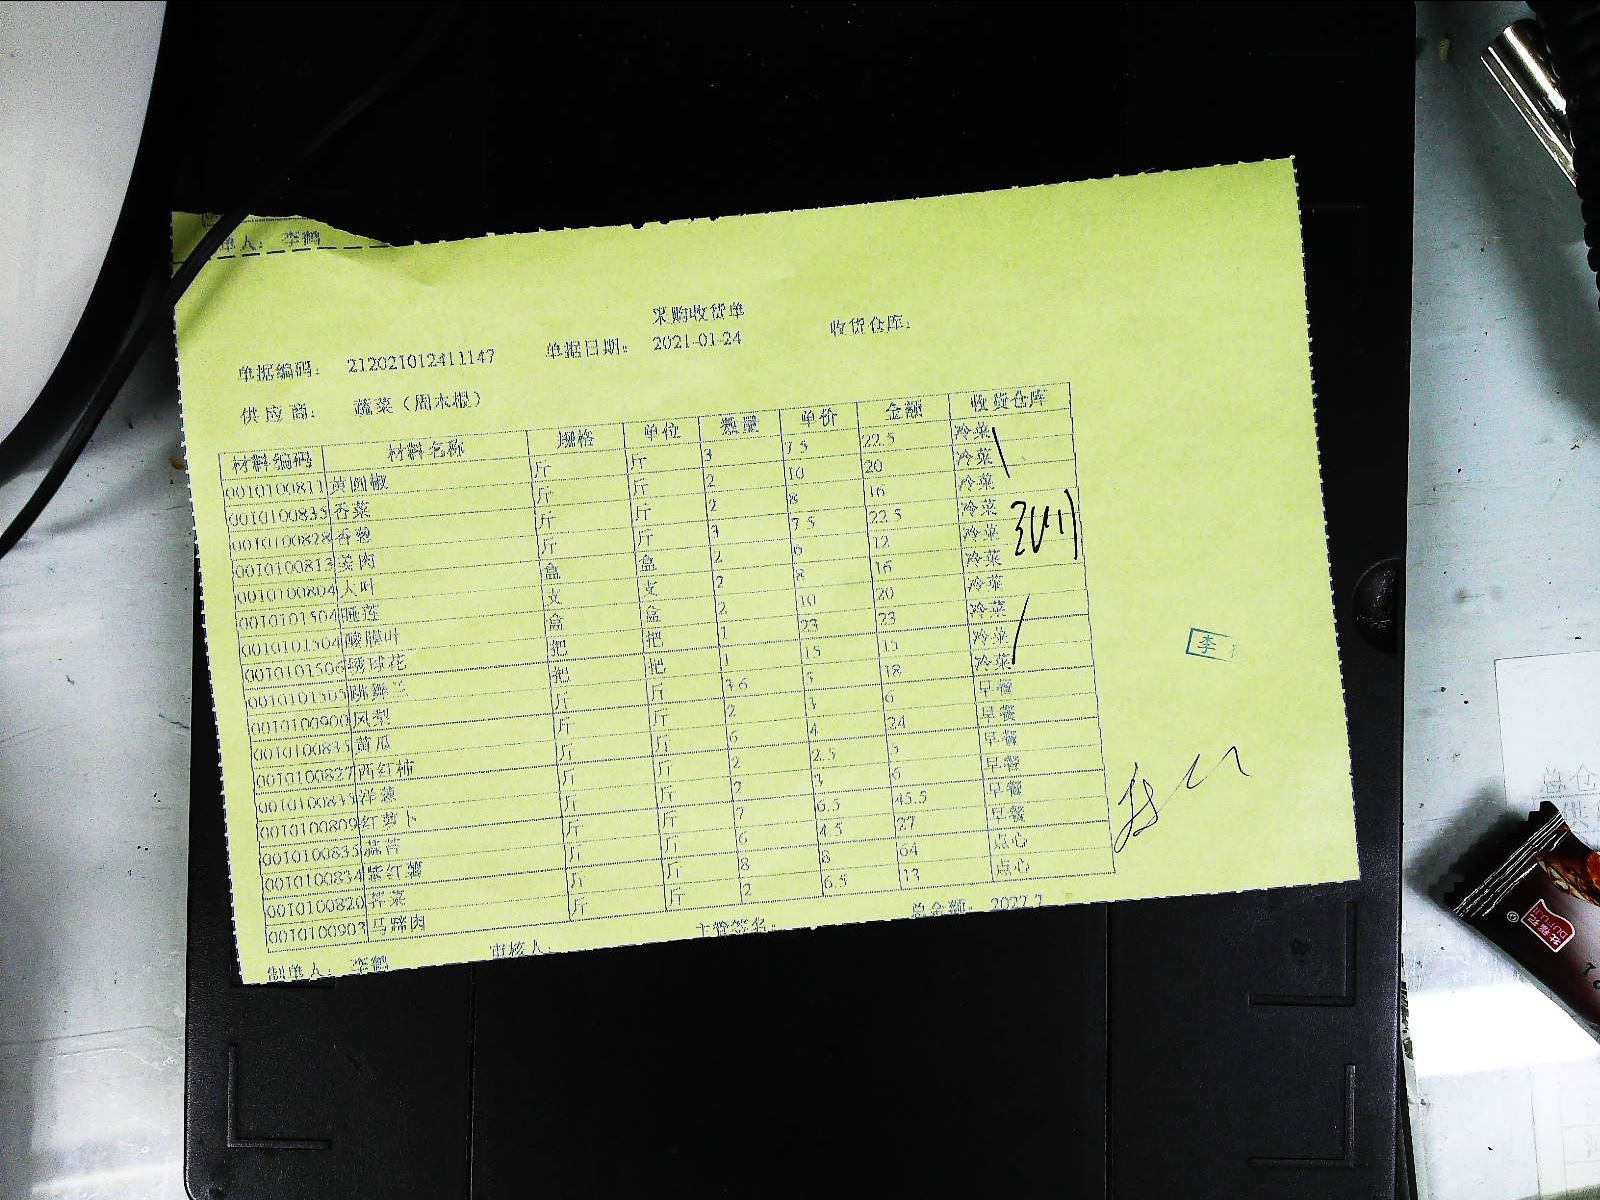 制单人： 李鹤
采购收货单
单据编码： 212021012411147 单据日期： 2021-01-24 收货仓库：
供应商： 蔬菜（周水根）
材料编码 材料名称 规格 单位 数量 单价 金额 收货仓库
0010100811 黄圆椒 斤 斤 3 7.5 22.5 冷菜
0010100835 香菜 斤 斤 2 10 20 冷菜
0010100828 香葱 斤 斤 2 8 16 冷菜
0010100813 姜肉 斤 斤 3 7.5 22.5 冷菜
0010100804 大叶 盒 盒 2 6 12 冷菜
0010101504 睡莲 支 支 2 8 16 冷菜
0010101504 酸膜叶 盒 盒 2 10 20 冷菜
0010101506 绣球花 把 把 1 23 23 冷菜
0010101505 跳舞兰 把 把 1 15 15 冷菜
0010100900 凤梨 斤 斤 3.6 5 18 冷菜
0010100835 黄瓜 斤 斤 2 3 6 早餐
0010100827 西红柿 斤 斤 6 4 24 早餐
0010100835 洋葱 斤 斤 2 2.5 5 早餐
0010100809 红萝卜 斤 斤 2 3 6 早餐
0010100835 蒜苔 斤 斤 7 6.5 45.5 早餐
0010100834 紫红薯 斤 斤 6 4.5 27 早餐
0010100820 荠菜 斤 斤 8 8 64 点心
0010100903 马蹄肉 斤 斤 2 6.5 13 点心
李
制单人： 李鹤 审核人： 主管签名： 总金额：